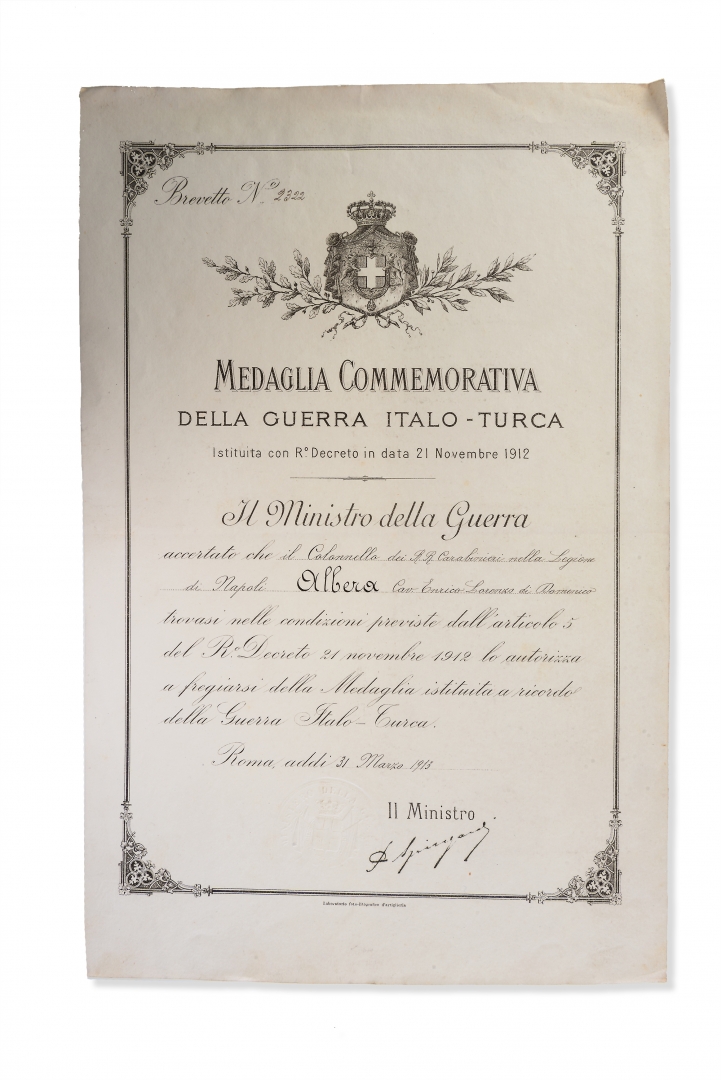 Brevetto N.º 2322
MEDAGLIA COMMEMORATIVA
DELLA GUERRA ITALO-TURCA
Istituita con R.º Decreto in data 21 Novembre 1912
Il Ministro della Guerra
accertato che il Colonnello dei R.R. Carabinieri nella Legione
di Napoli Albera Cav. Enrico Lorenzo di Domenico
trovasi nelle condizioni previste dall'articolo 5
del R.º Decreto 21 novembre 1912 lo autorizza
a fregiarsi della Medaglia istituita a ricordo
della Guerra Italo-Turca.
Roma, addì 31 Marzo 1913
Il Ministro
Laboratorio foto-litografico d'artiglieria